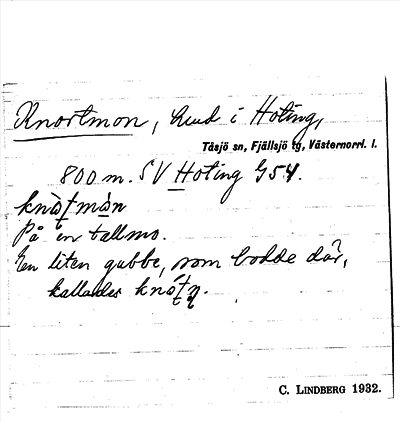 Knortmon, hmd i Hoting,
Tåsjö sn, Fjällsjö tg, Västernorrl. l.
800 m. SV Hoting G54.
knòṭmån
På en tallmo.
En liten gubbe, som bodde där,
kallades knòṭṇ.
C. LINDBERG 1932.